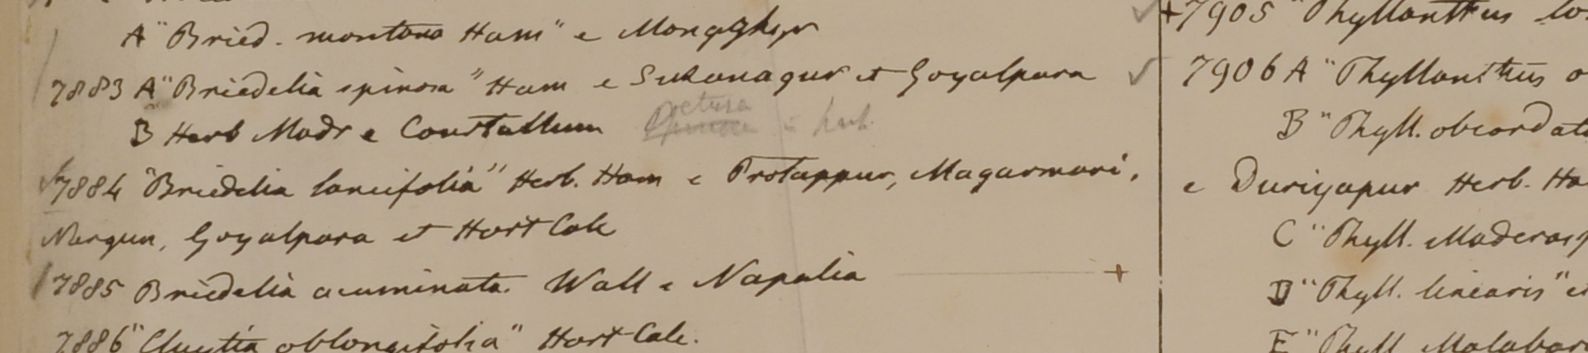 A "Bried. montana Ham" e Mongghyr
7883 A "Briedelia spinosa" Ham e Sukanagur et Goyalpara
B Herb Madr e Courtallum
in herb.
7884 "Briedelia lancifolia" Herb. Ham e Protappur, Magurmari,
Nergun, Goyalpara et Hort Calc
7885 Briedelia acuminata. Wall e Napalia +
7886 "Cluytia oblongifolia" Hort Calc.
+7905 "Phyllanthus
7906 A "Phyllanthus
B "Phyll. obcordat
e Duriyapur Herb. Ha
C "Phyll. Maderasp
D "Phyll. linearis" e
E "Phyll Malabar